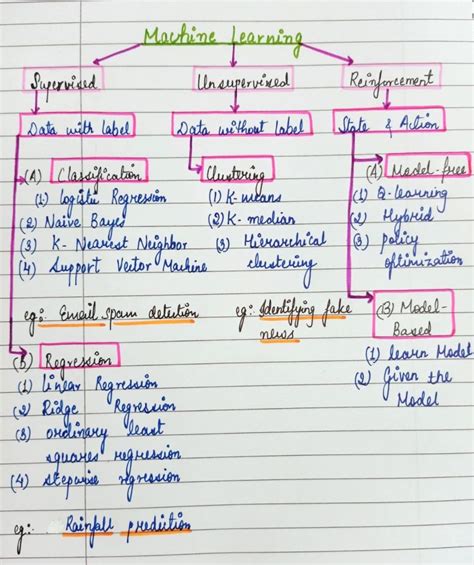 Machine Learning
Supervised
Unsupervised
Reinforcement
Data with label
Data without label
State & Action
(A) Classification
(1) logistic Regression
(2) Naive Bayes
(3) K- Nearest Neighbor
(4) Support Vector Machine
eg:- Email spam detection
(b) Regression
(1) linear Regression
(2) Ridge Regression
(3) ordinary least
squares regression
(4) stepwise regression
eg:- Rainfall prediction
Clustering
(1) K-means
(2) K-median
(3) Hierarchical
clustering
eg:- Identifying fake
news
(A) Model-free
(1) Q-learning
(2) Hybrid
(3) policy
optimization
(B) Model-
Based
(1) learn Model
(2) Given the
Model